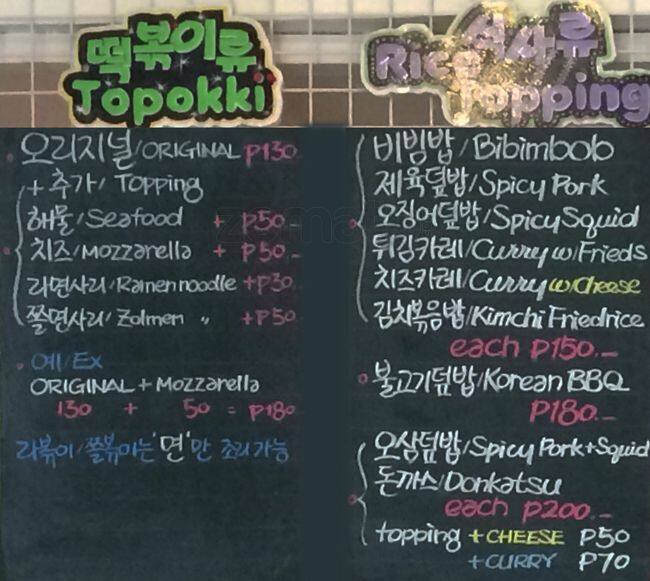 떡볶이류
Topokki
오리지널/ORIGINAL P130
+ 추가/ Topping
해물/Seafood + P50.-
치즈/Mozzarella + P50.-
라면사리/Ramen noodle + P30.-
쫄면사리/Zolmen 〃 + P50
예/Ex
ORIGINAL + Mozzarella
130 + 50 = P180
라볶이/쫄볶이는 '면'만 조리 가능
식사류
Rice Topping
비빔밥/Bibimbob
제육덮밥/Spicy Pork
오징어덮밥/Spicy Squid
튀김카레/Curry w/Frieds
치즈카레/Curry w/Cheese
김치볶음밥/Kimchi Friedrice
each P150.-
불고기덮밥/Korean BBQ
P180.-
오삼덮밥/Spicy Pork+Squid
돈까스/Donkatsu
each P200.-
topping + CHEESE P50
+CURRY P70